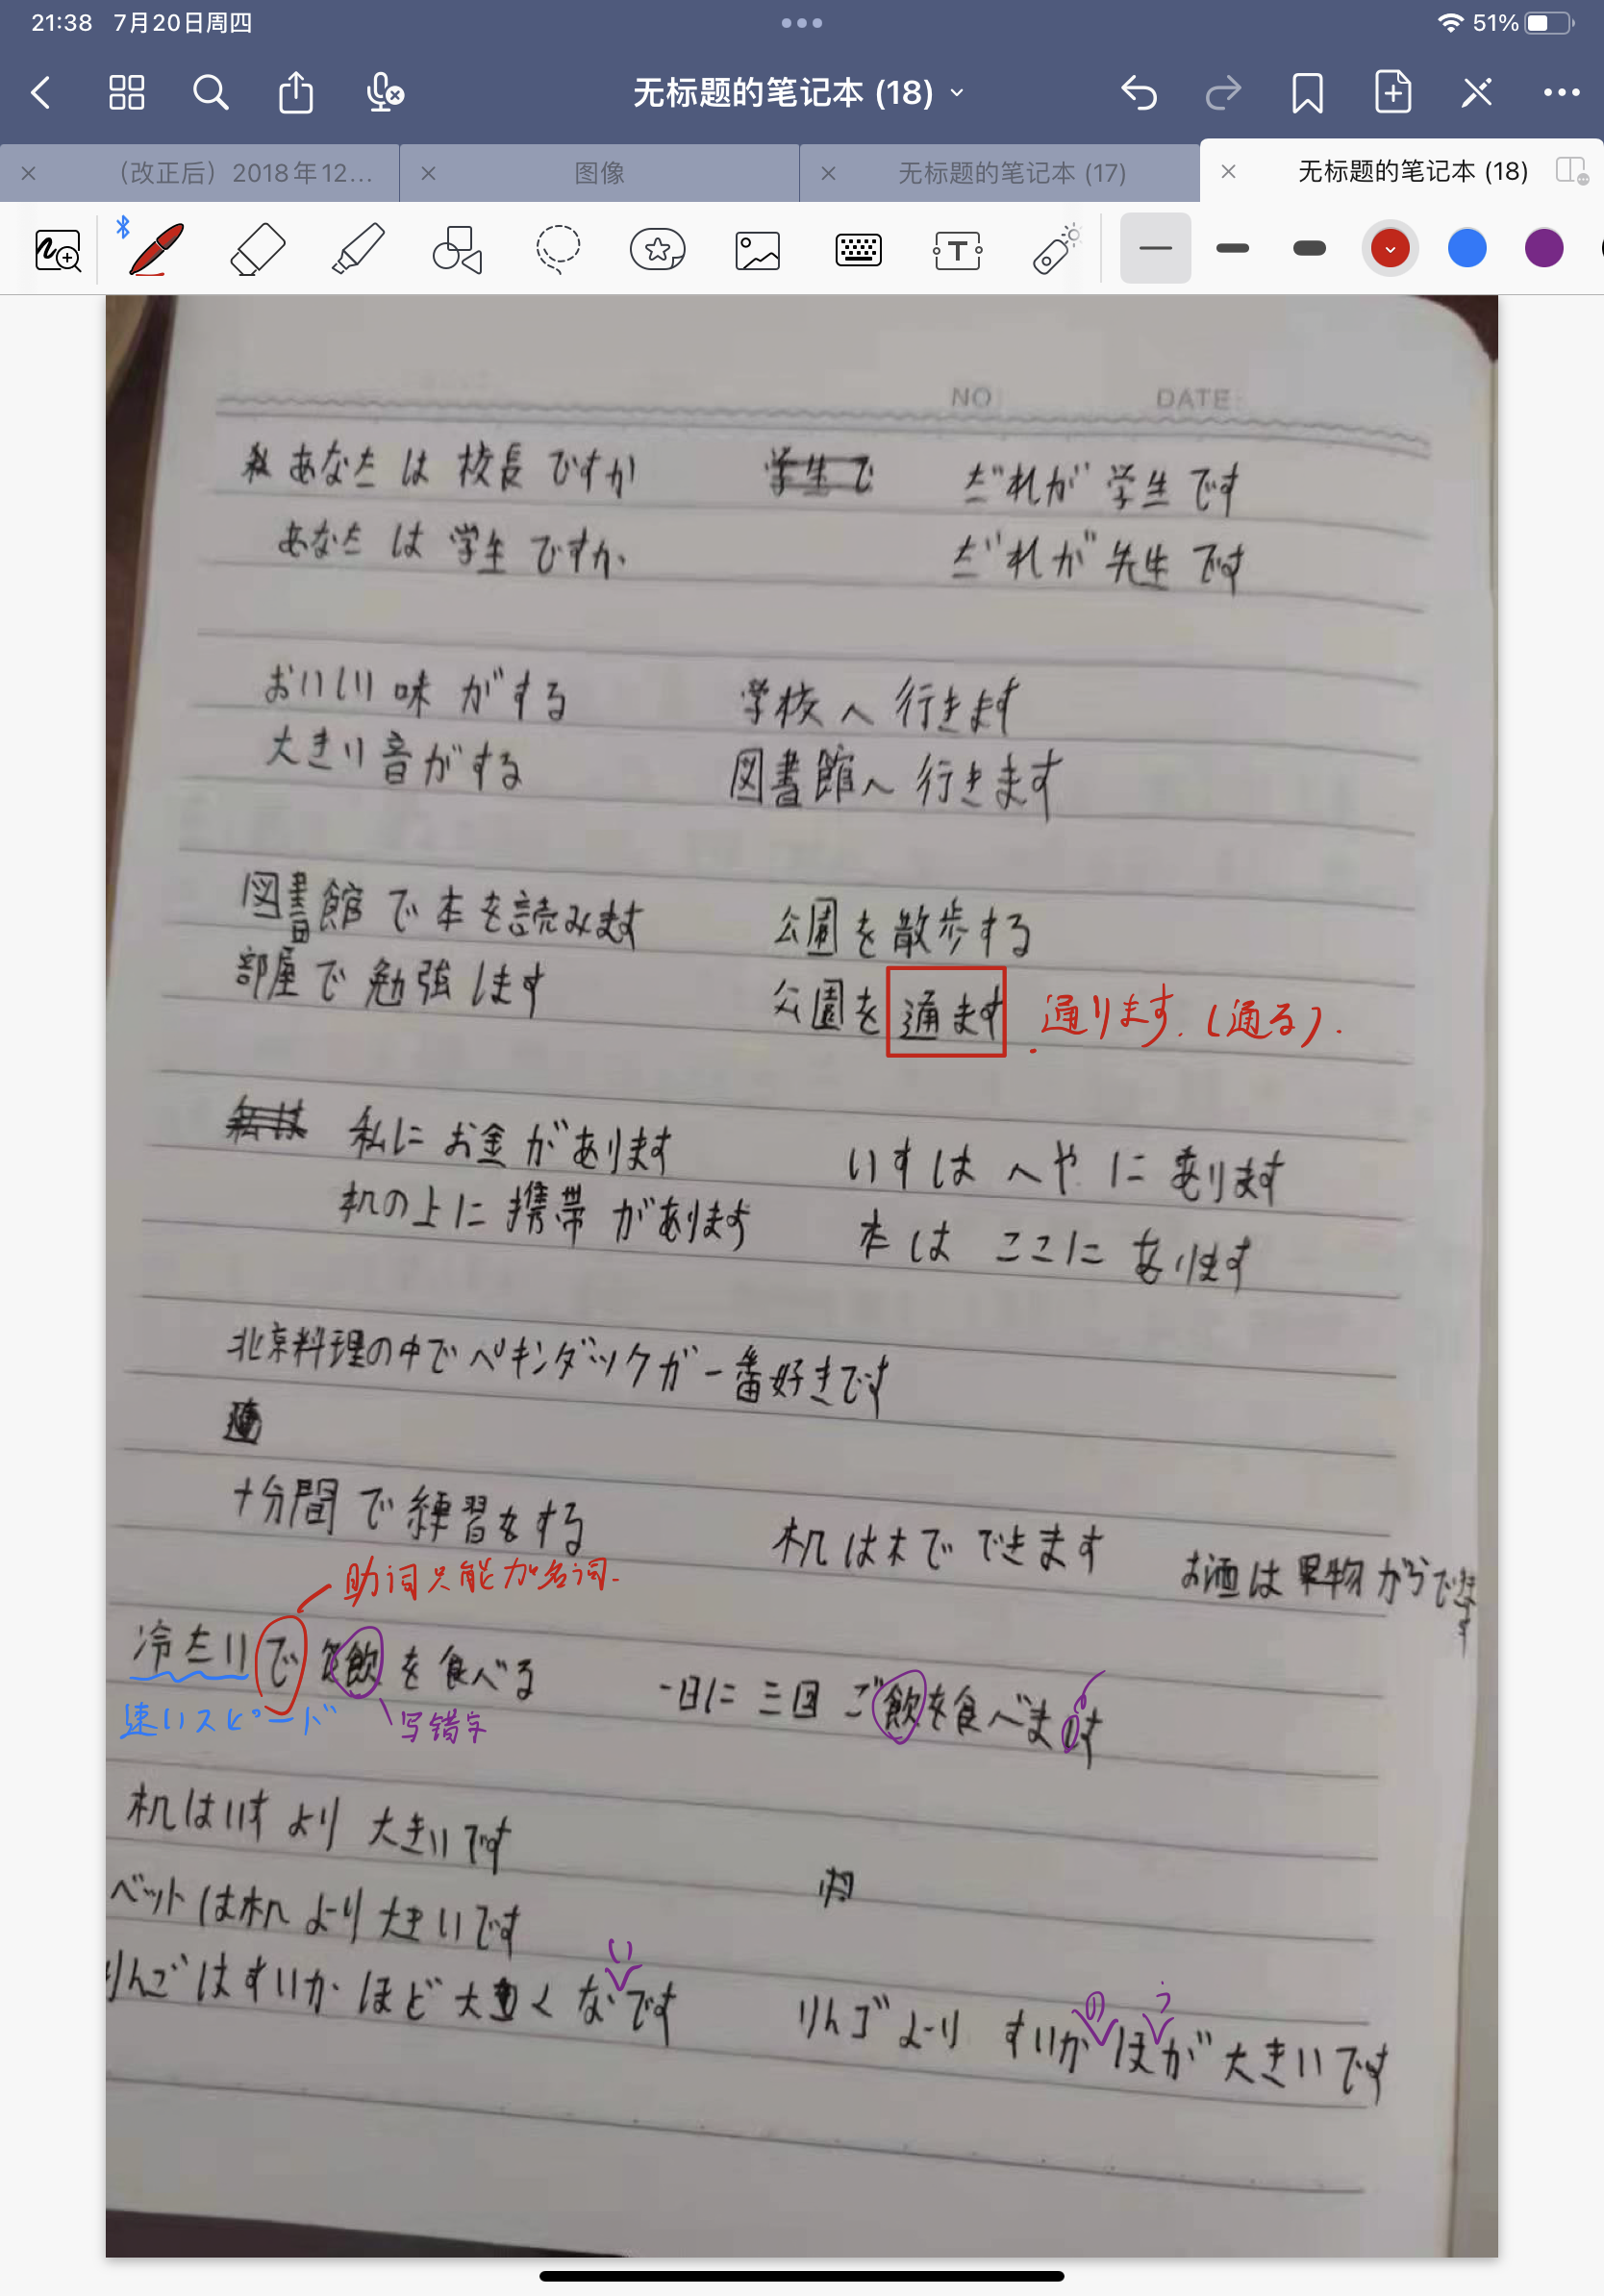 21:38 7月20日周四
51%
无标题的笔记本 (18)
（改正后）2018年12...
图像
无标题的笔记本 (17)
无标题的笔记本 (18)
NO
DATE:
あなたは 校長 ですか だれが 学生 です
あなたは 学生 ですか だれが 先生 です
おいしい 味 がする 学校へ 行きます
大きい 音がする 図書館へ 行きます
図書館 で 本を読みます 公園を 散歩する
部屋で 勉強します 公園を 通ます 通ります.(通る).
私に お金 があります いすは へや に あります
机の上に 携帯 があります 本は ここに あります
北京料理の中で ペキンダックが 一番好きです
十分間 で 練習をする 机は木で できます お酒は 果物 からできます
助词只能加名词.
冷たい で を 食べる 一日に 三回 ご飲を食べます
速いスピード 写错字
机はいす より 大きいです
ベットは机 より 大きいです
い
りんごは すいか ほど 大きく なです の う
りんごより すいか ほが 大きいです